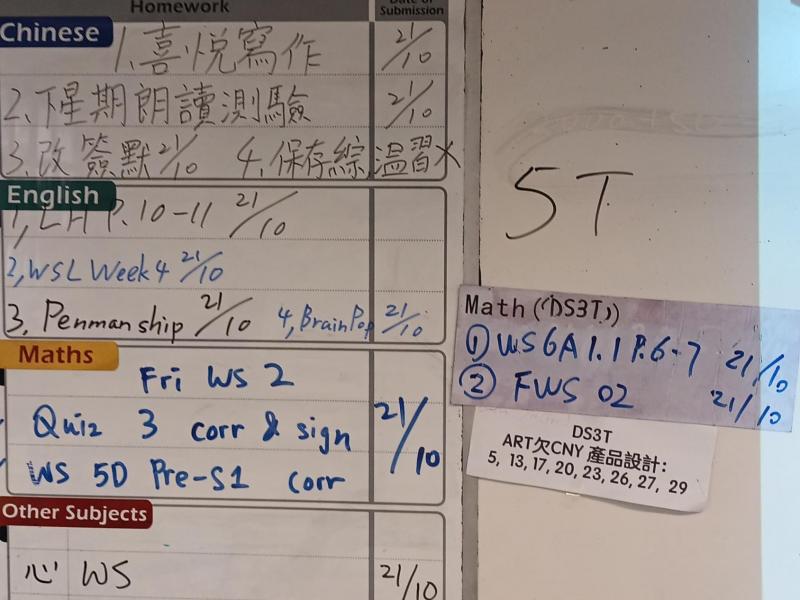 Homework
Date of Submission
Chinese
1. 喜悅寫作 21/10
2. 下星期朗讀測驗 21/10
3. 改簽默 21/10 4. 保存綜溫習X
English
1, P. 10-11 21/10
2, WSL Week 4 21/10
3, Penmanship 21/10 4, BrainPop 21/10
Maths
Fri WS 2
Quiz 3 corr & sign 21/10
WS 5D Pre-S1 corr
Other Subjects
心 WS 21/10
5T
Math (DS3T)
① WS 6A 1.1 P.6-7 21/10
② FWS 02 21/10
DS3T
ART欠CNY 產品設計:
5, 13, 17, 20, 23, 26, 27, 29